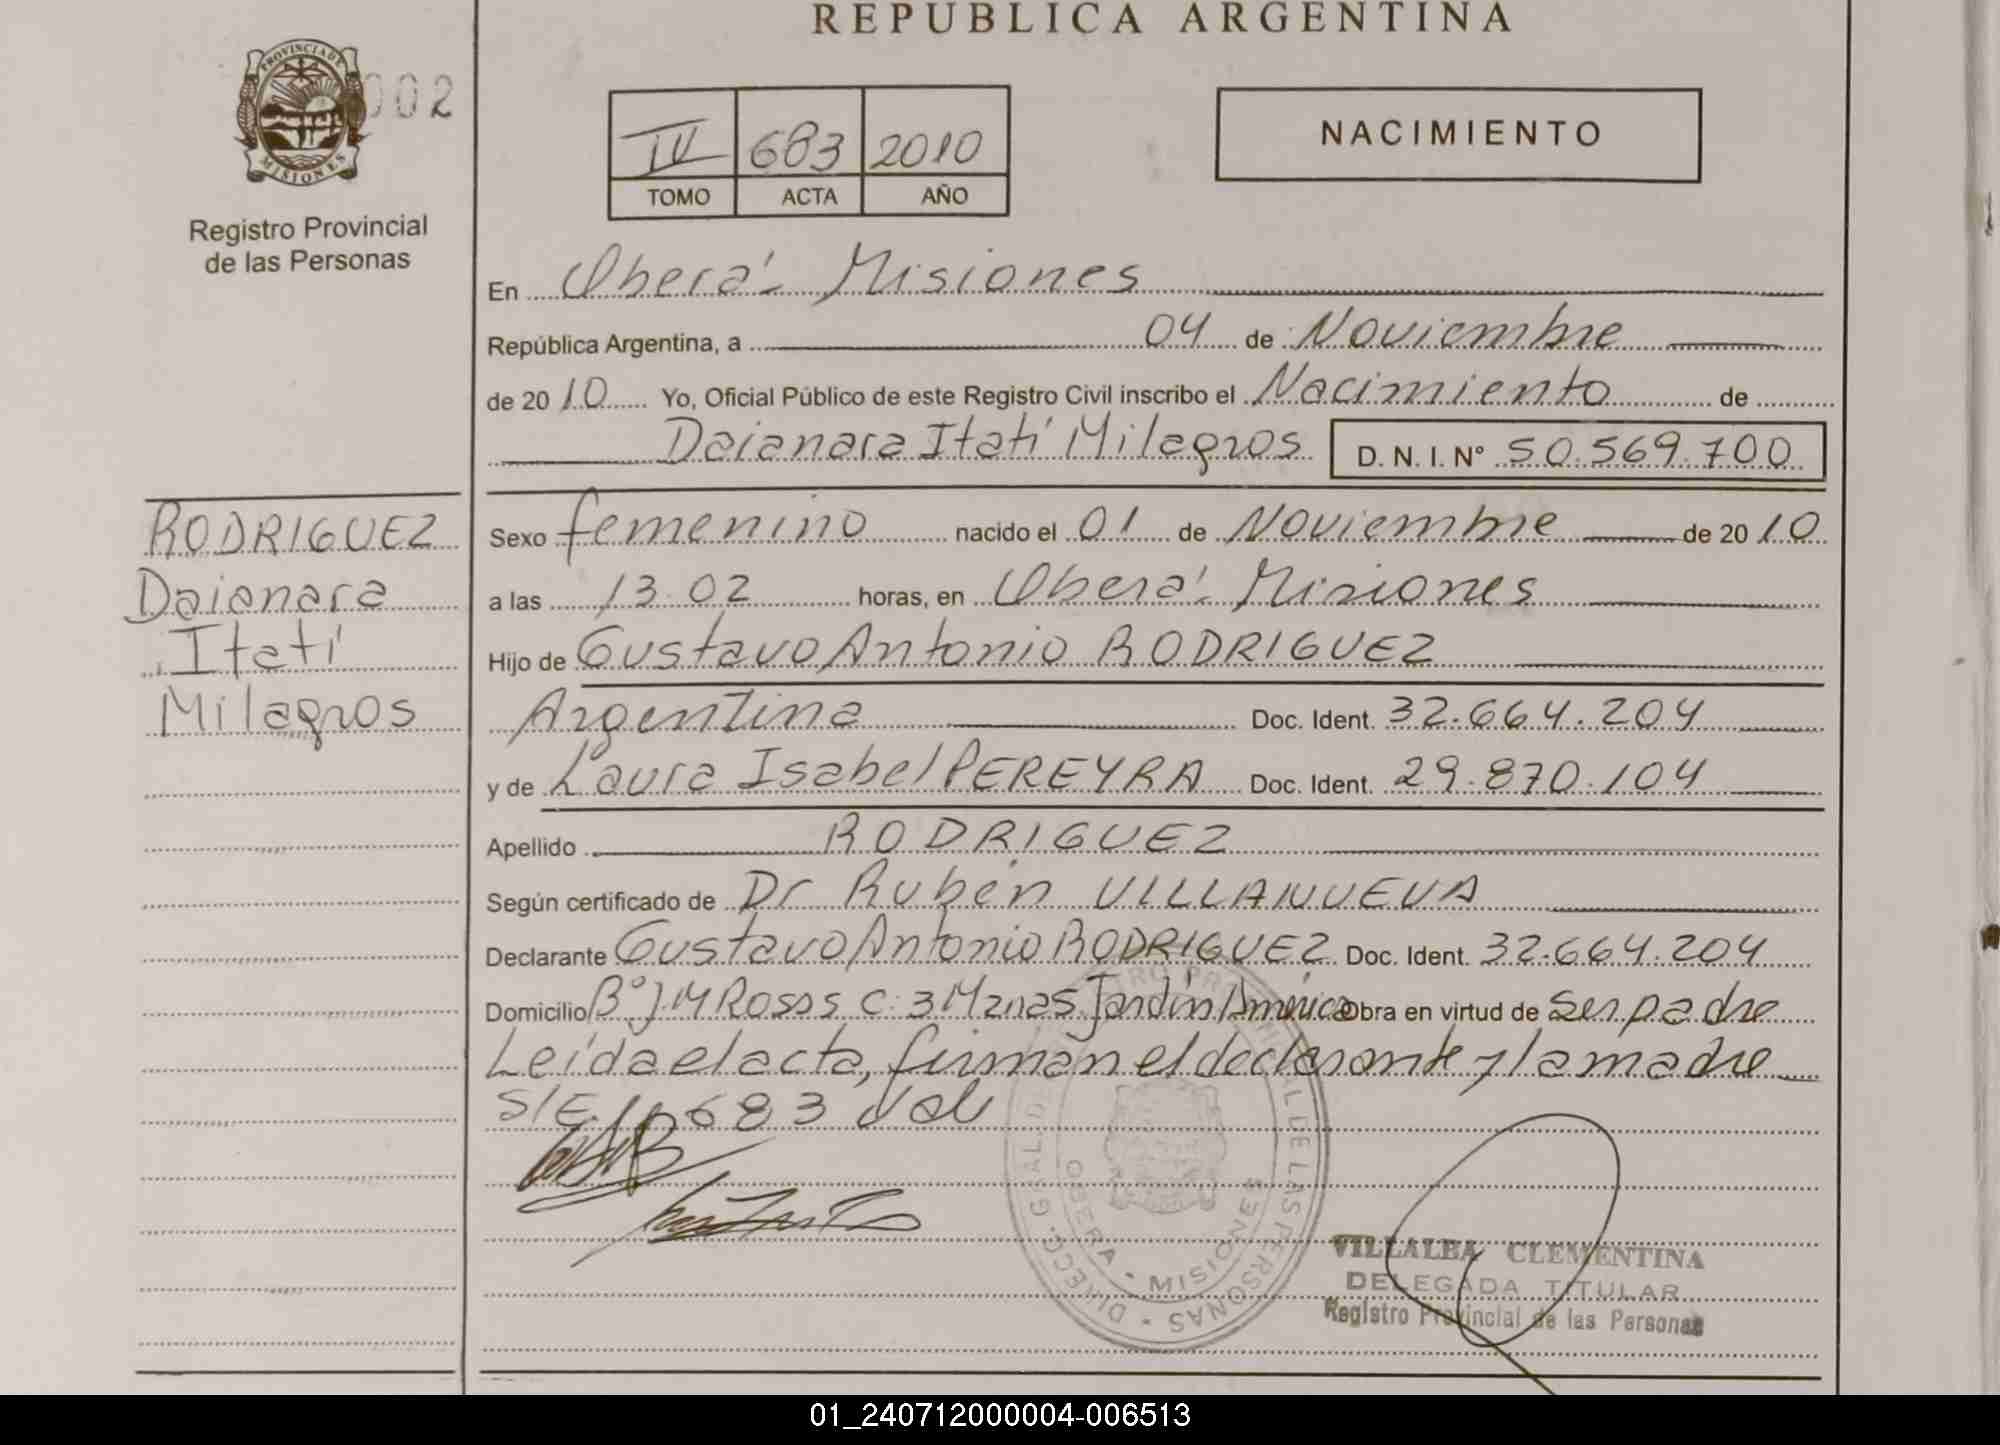 REPUBLICA ARGENTINA
PROVINCIA DE MISIONES
002
Registro Provincial
de las Personas
IV 683 2010
TOMO ACTA AÑO
NACIMIENTO
En Oberá - Misiones
República Argentina, a 04 de Noviembre
de 2010 Yo, Oficial Público de este Registro Civil inscribo el Nacimiento de
Daianara Itatí Milagros D. N. I. N° 50.569.700
RODRIGUEZ
Daianara
Itatí
Milagros
Sexo femenino nacido el 01 de Noviembre de 2010
a las 13.02 horas, en Oberá - Misiones
Hijo de Gustavo Antonio RODRIGUEZ
Argentina Doc. Ident. 32.664.204
y de Laura Isabel PEREYRA Doc. Ident. 29.870.104
Apellido RODRIGUEZ
Según certificado de Dr Rubén VILLANUEVA
Declarante Gustavo Antonio RODRIGUEZ Doc. Ident. 32.664.204
Domicilio B° J.M Rosas C: 3 Mza 25 Jardín América Obra en virtud de ser padre
Leída el acta, firman el declarante y la madre
S/E 683 Vale
OBERA - MISIONES
VILLALBA CLEMENTINA
DELEGADA TITULAR
Registro Provincial de las Personas
01_240712000004-006513